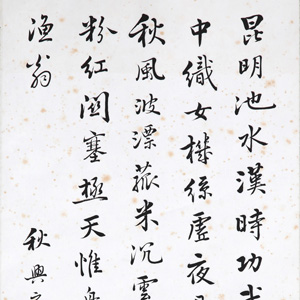 昆明池水漢時功
中織女機絲虛夜
秋風波漂菰米沉雲
粉紅關塞極天惟鳥
漁翁
秋興